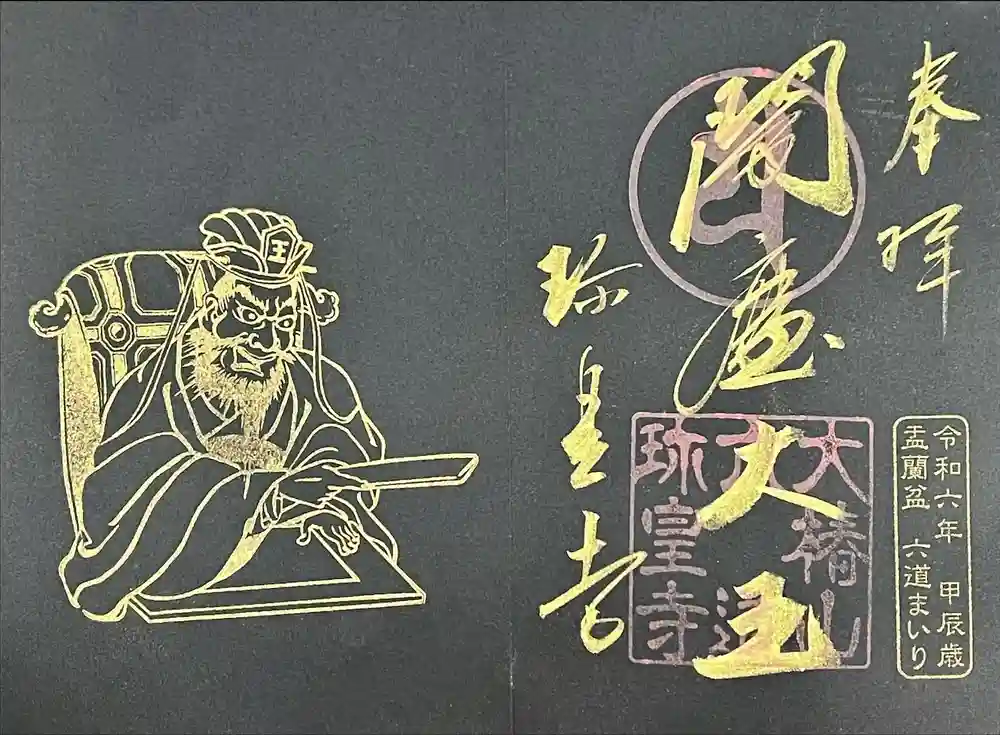 奉拝
令和六年 甲辰歳
盂蘭盆 六道まいり
閻魔大王
大椿山
六道
珎皇寺
珎皇寺
王